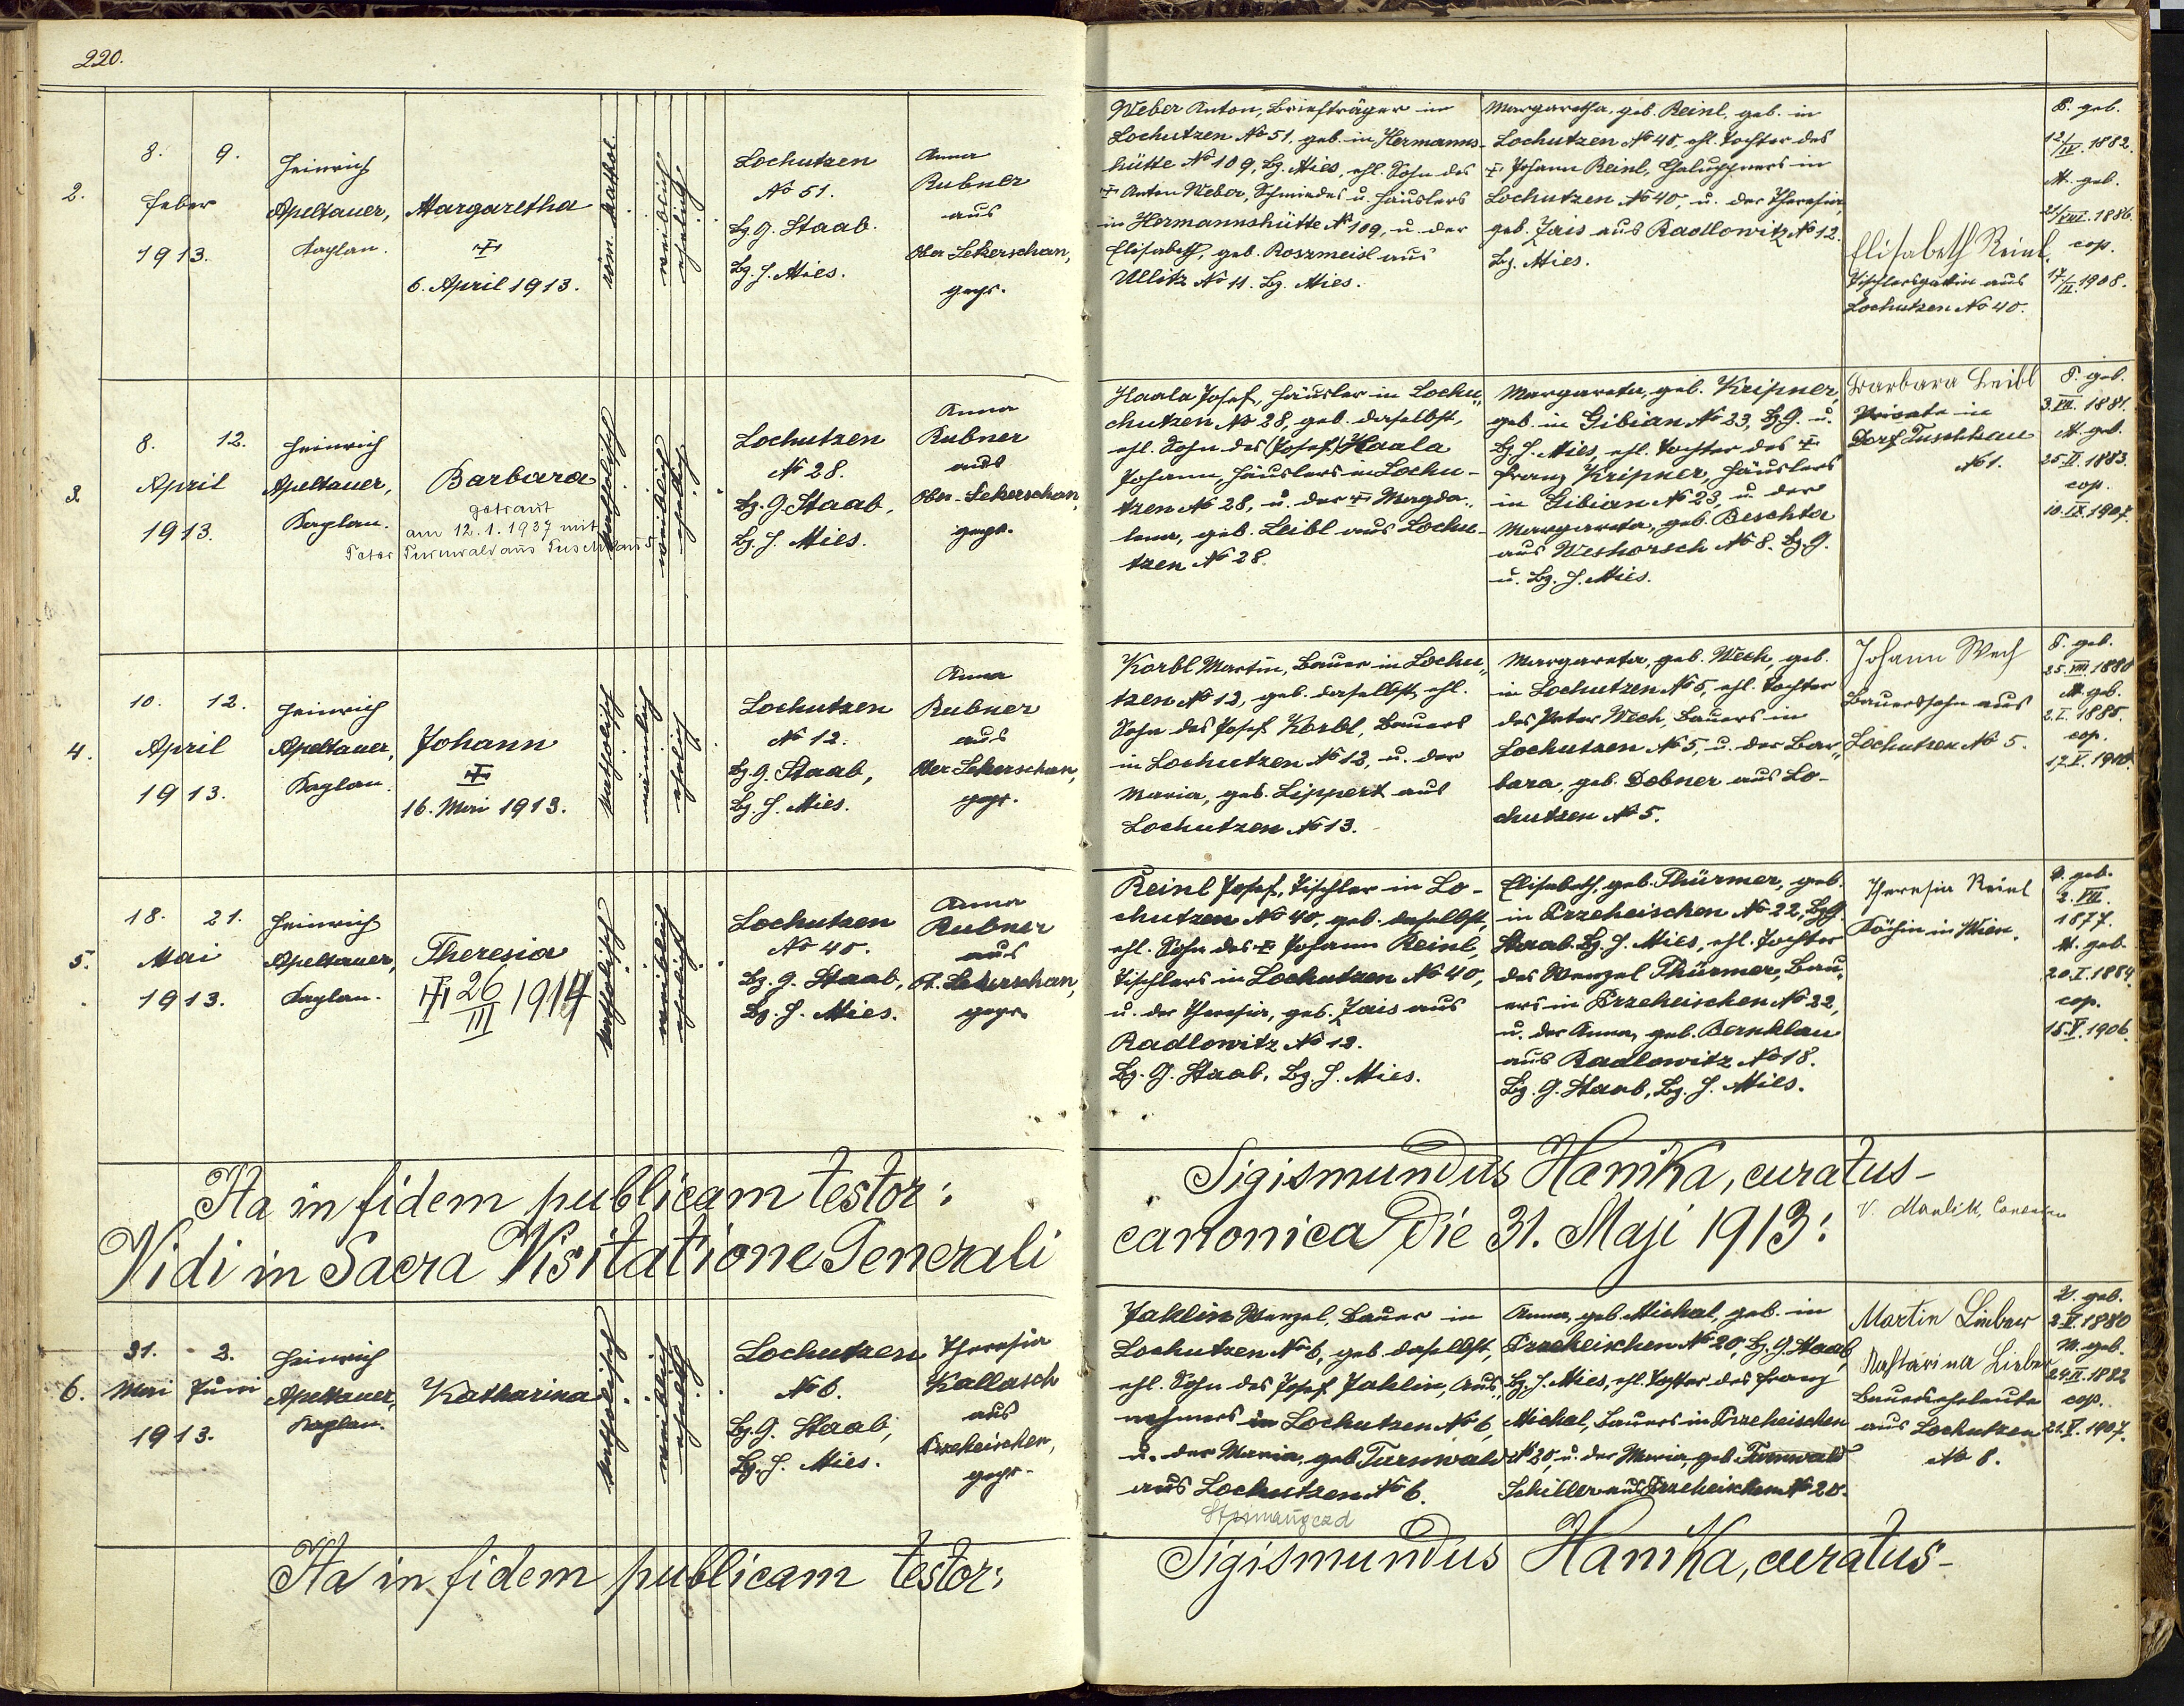 220.
2.
8. 9.
Feber
1913.
Heinrich
Apeltauer,
Kaplan.
Margaretha
6. April 1913.
röm. kathol.
weiblich
ehelich
Lochutzen
No 51.
Bz. G. Staab.
Bz. H. Mies.
Anna
Rubner
aus
Ober Sekerschan,
gepr.
Weber Anton, Briefträger in
Lochutzen No 51, geb. in Hermanns-
hütte No 109, Bz. Mies, ehl. Sohn des
Anton Weber, Schmiedes u. Häuslers
in Hermannshütte No 109, u. der
Elisabeth, geb. Roszmeisl aus
Ullitz No 11. Bz. Mies.
Margaretha, geb. Reinl, geb. in
Lochutzen No 40, ehl. Tochter des
Johann Reinl, Chaluppners in
Lochutzen No 40, u. der Theresia,
geb. Zais aus Radlowitz No 12.
Bz. Mies.
Elisabeth Reinl,
Tischlersgattin aus
Lochutzen No 40.
V. geb.
12/IV. 1882.
M. geb.
1886.
cop.
17/II. 1908.
3.
8. 12.
April
1913.
Heinrich
Apeltauer,
Kaplan.
Barbara
getraut
am 12.1.1937 mit
Peter Turnwald aus Tuschkau 5
katholisch
weiblich
ehelich
Lochutzen
No 28.
Bz. G. Staab,
Bz. H. Mies.
Anna
Rubner
aus
Ober-Sekerschan,
gepr.
Haala Josef, Häusler in Lochu„
chutzen No 28, geb. daselbst,
ehl. Sohn des (Josef) Haala
Johann, Häuslers in Lochu-
tzen No 28, u. der Magda-
lena, geb. Leibl aus Lochu-
tzen No 28.
Margareta, geb. Kripner,
geb. in Gibian No 23, Bz. G. u.
Bz. H. Mies, ehl. Tochter des
Franz Kripner, Häuslers
in Gibian No 23, u. der
Margareta, geb. Beschta
aus Weshorsch No 8. Bz. G.
u. Bz. H. Mies.
Barbara Leibl
Private in
Dorf Tuschkau
No 1.
V. geb.
3. VII. 1881.
M. geb.
25. II. 1883.
cop.
10. IX. 1907.
4.
10. 12.
April
1913.
Heinrich
Apeltauer,
Kaplan.
Johann
16. Mai 1913.
katholisch
männlich
ehelich
Lochutzen
No 12.
Bz. G. Staab,
Bz. H. Mies.
Anna
Rubner
aus
Ober Sekerschan,
gepr.
Korbl Martin, Bauer in Lochu„
tzen No 12, geb. daselbst, ehl.
Sohn des Josef Korbl, Bauers
in Lochutzen No 12, u. der
Maria, geb. Lippert aus
Lochutzen No 13.
Margareta, geb. Wech, geb.
in Lochutzen No 5, ehl. Tochter
des Peter Wech, Bauers in
Lochutzen No 5, u. der Bar„
bara, geb. Dobner aus Lo-
chutzen No 5.
Johann Wech
Bauerssohn aus
Lochutzen No 5.
V. geb.
25. VIII. 1880
M. geb.
2. I. 1885.
cop.
17. V. 1910.
5.
18. 21.
Mai
1913.
Heinrich
Apeltauer,
Kaplan.
Theresia
26/III 1914
katholisch
weiblich
ehelich
Lochutzen
No 40.
Bz. G. Staab,
Bz. H. Mies.
Anna
Rubner
aus
O. Sekerschan,
gepr.
Reinl Josef, Tischler in Lo-
chutzen No 40, geb. daselbst,
ehl. Sohn des Johann Reinl,
Tischlers in Lochutzen No 40,
u. der Theresia, geb. Zais aus
Radlowitz No 12.
Bz. G. Staab, Bz. H. Mies.
Elisabeth, geb. Thürmer, geb.
in Przeheischen No 22, Bz. G.
Staab. Bz. H. Mies, ehl. Tochter
des Wenzel Thürmer, Bau„
ers in Przeheischen No 22,
u. der Anna, geb. Bernklau
aus Radlowitz No 18.
Bz. G. Staab, Bz. H. Mies.
Theresia Reinl
Köchin in Wien.
V. geb.
2. VII.
1877.
M. geb.
20. I. 1884.
cop.
15. V. 1906.
Ita in fidem publicam testor: Sigismundus Hanika, curatus-
Vidi in Sacra Visitatione Generali canonica Die 31. Maji 1913:
V. Mardik,
6.
31. 2.
Mai Juni
1913.
Heinrich
Apeltauer,
Kaplan.
Katharina
katholisch
weiblich
ehelich
Lochutzen
No 6.
Bz. G. Staab,
Bz. H. Mies.
Theresia
Kallasch
aus
Przeheischen,
gepr.
Jaklin Wenzel, Bauer in
Lochutzen No 6, geb. daselbst,
ehl. Sohn des Josef Jaklin, Aus„
nehmers in Lochutzen No 6,
u. der Maria, geb. Turnwald
aus Lochutzen No 6.
Anna, geb. Michal, geb. in
Przeheischen No 20, Bz. G. Staab,
Bz. H. Mies, ehl. Tochter des Franz
Michal, Bauers in Przeheischen
No 20, u. der Maria, geb. Turnwald
Schiller aus Przeheischen No 20.
Martin Lieber
Katharina Lieber
Bauerseheleute
aus Lochutzen
No 8.
V. geb.
2. V. 1880
M. geb.
24. II. 1882
cop.
21. V. 1907.
Ita in fidem publicam testor: Sigismundus Hanika, curatus-